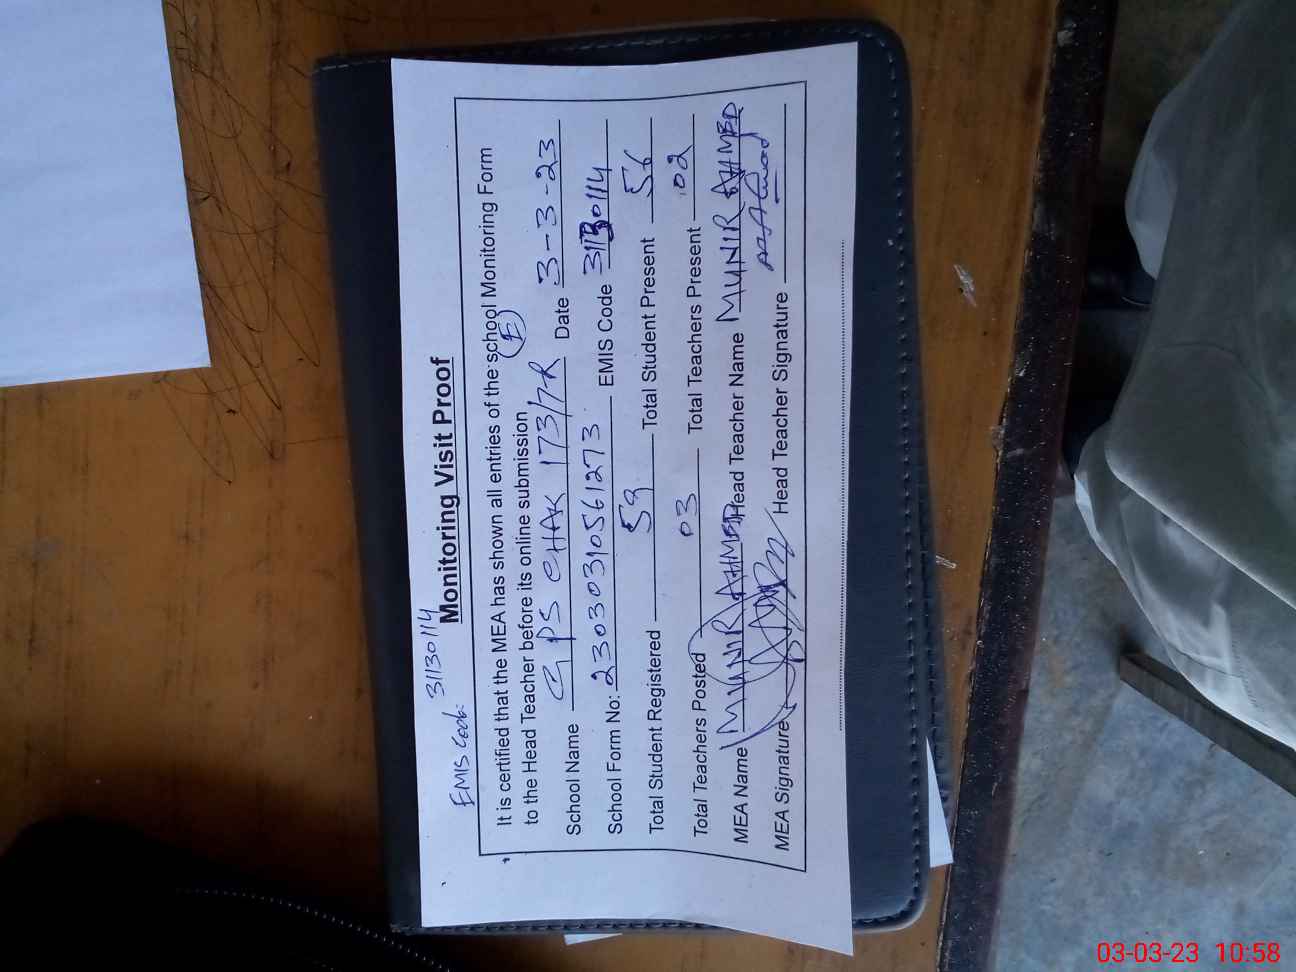 EMIS Code: 31130114
Monitoring Visit Proof
It is certified that the MEA has shown all entries of the school Monitoring Form
to the Head Teacher before its online submission (E)
School Name GPS CHAK 173/7R Date 3-3-23
School Form No: 23030310561273 EMIS Code 31130114
Total Student Registered 59 Total Student Present 56
Total Teachers Posted 03 Total Teachers Present 02
MEA Name MUNIR AHMED Head Teacher Name MUNIR AHMED
MEA Signature Head Teacher Signature
03-03-23 10:58